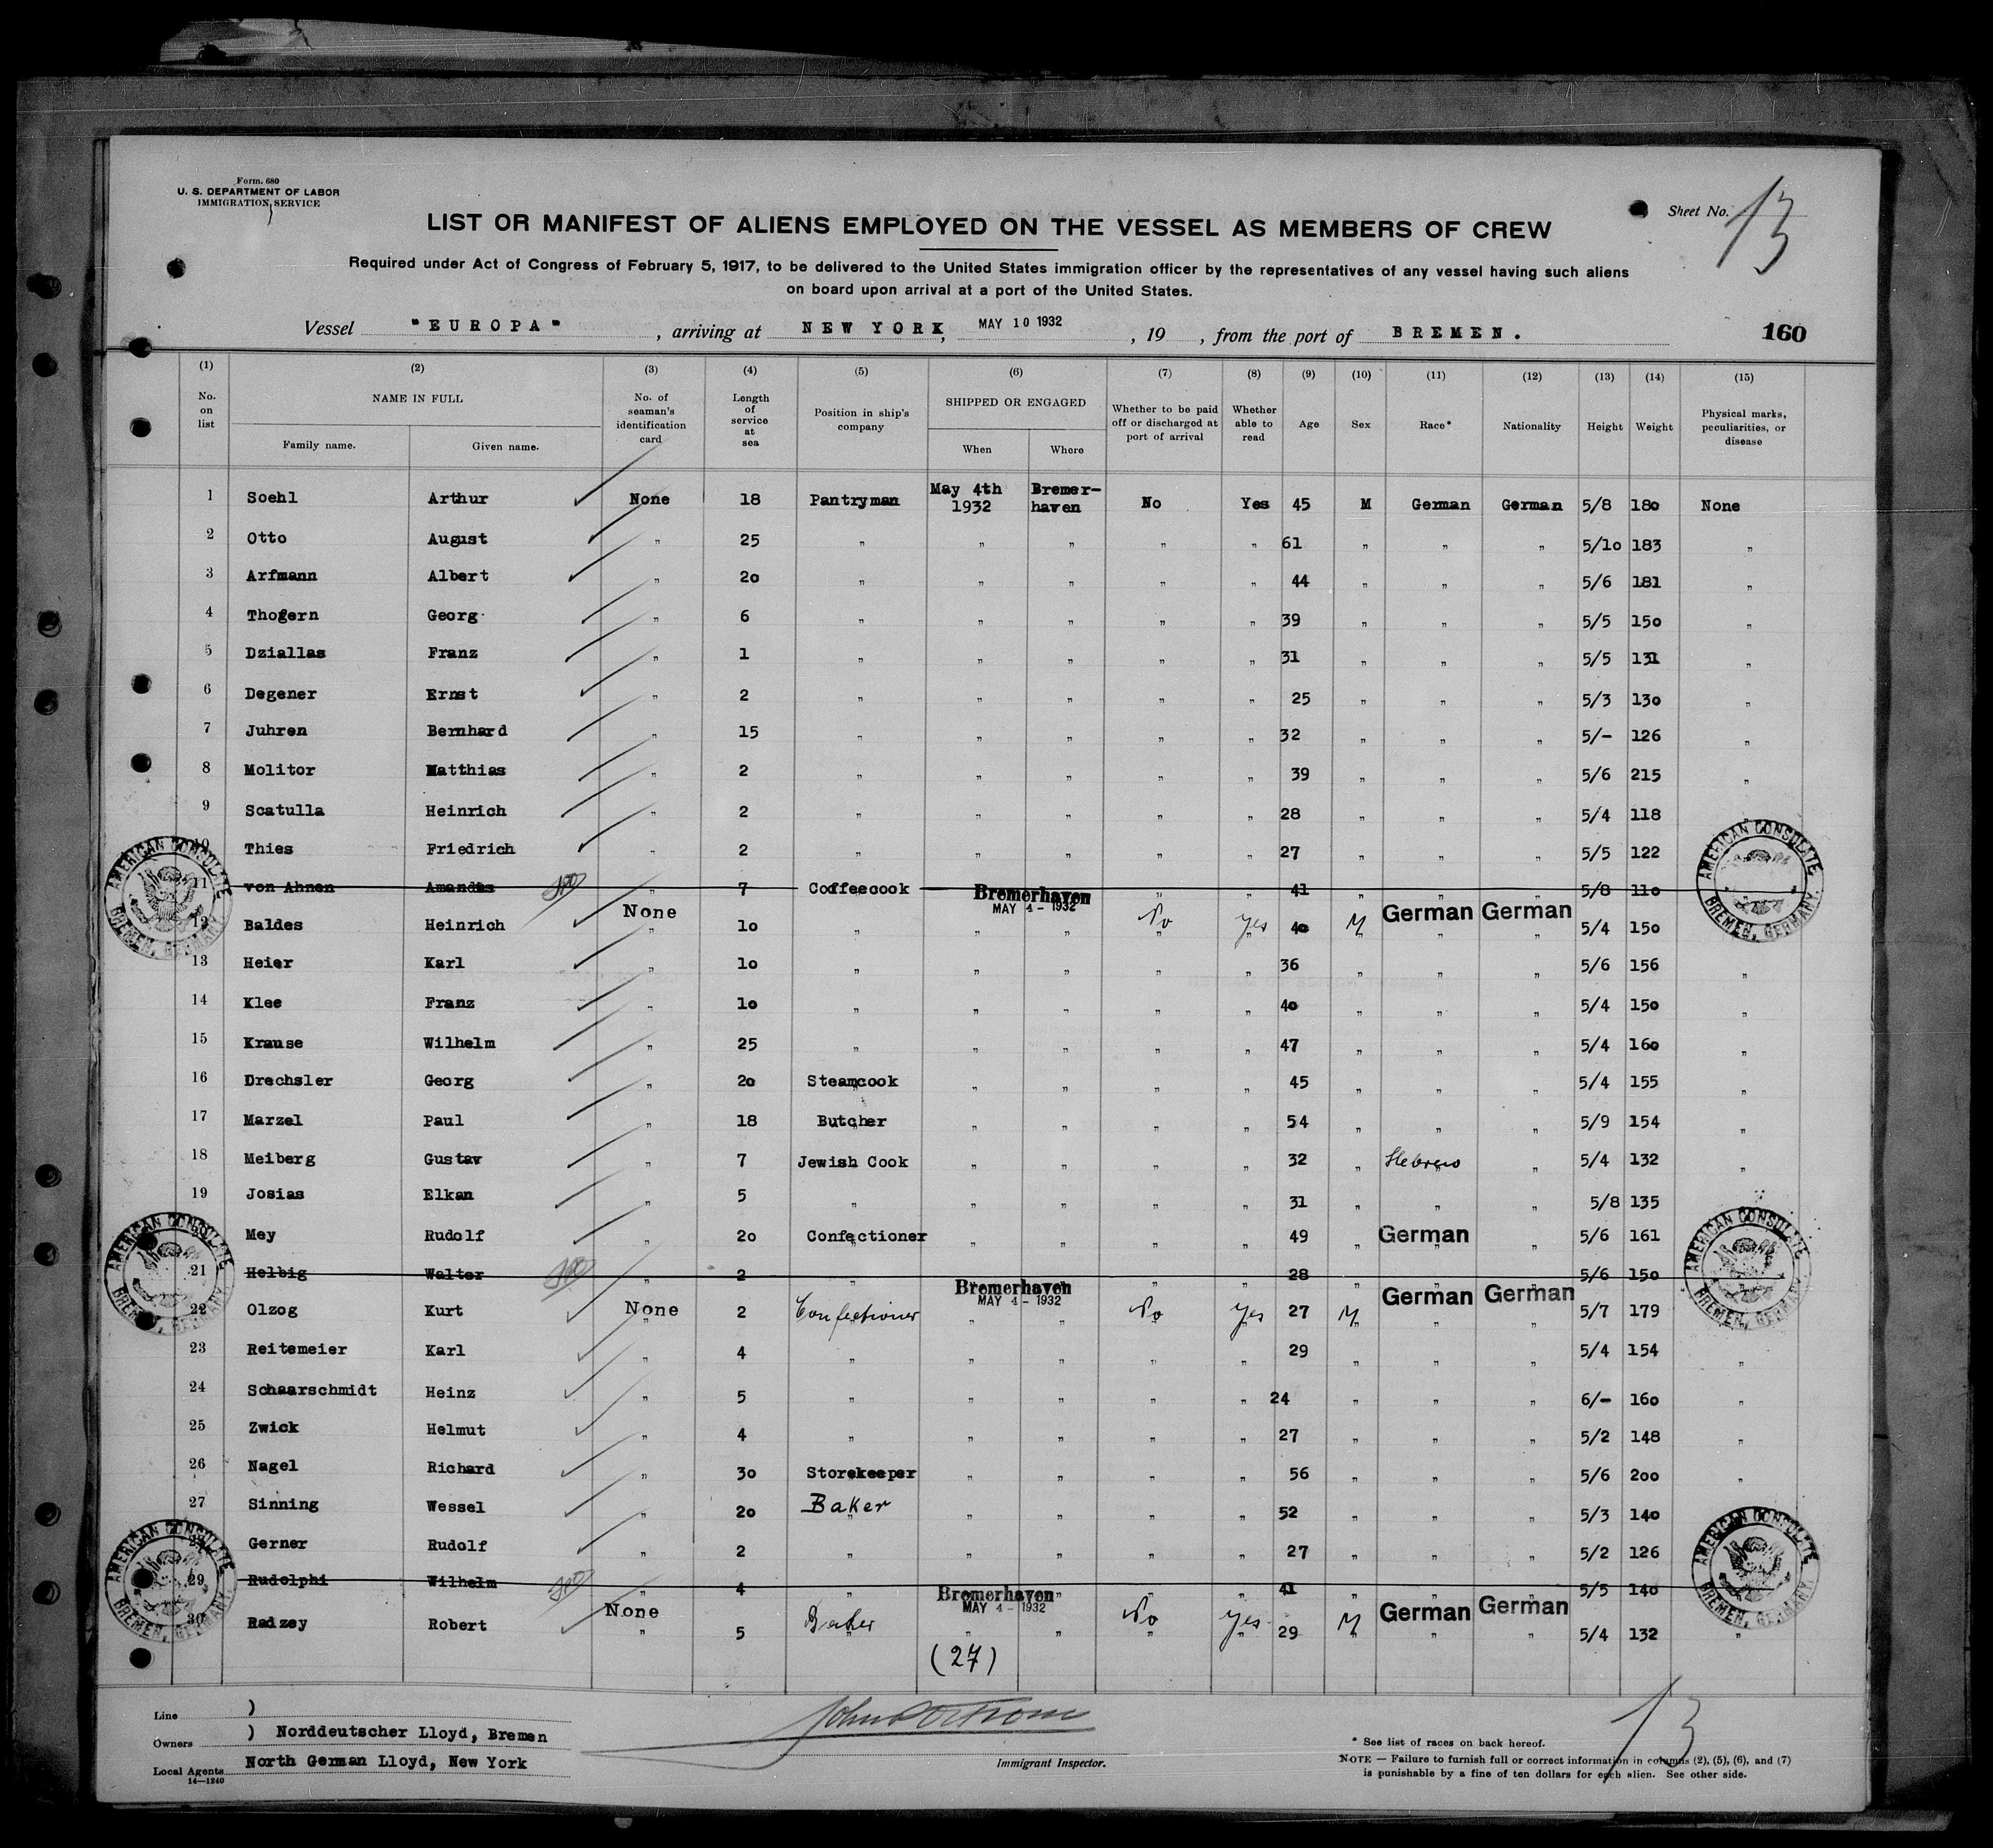 Form. 680
U. S. DEPARTMENT OF LABOR
IMMIGRATION SERVICE
Sheet No. 13
LIST OR MANIFEST OF ALIENS EMPLOYED ON THE VESSEL AS MEMBERS OF CREW
Required under Act of Congress of February 5, 1917, to be delivered to the United States immigration officer by the representatives of any vessel having such aliens
on board upon arrival at a port of the United States.
Vessel "EUROPA", arriving at NEW YORK, MAY 10 1932, 19 , from the port of BREMEN. 160
(1) (2) (3) (4) (5) (6) (7) (8) (9) (10) (11) (12) (13) (14) (15)
No. on list NAME IN FULL Family name. Given name. No. of seaman's identification card Length of service at sea Position in ship's company SHIPPED OR ENGAGED When Where Whether to be paid off or discharged at port of arrival Whether able to read Age Sex Race* Nationality Height Weight Physical marks, peculiarities, or disease
1 Soehl Arthur None 18 Pantryman May 4th 1932 Bremer-haven No Yes 45 M German German 5/8 180 None
2 Otto August " 25 " " " " " 61 " " " 5/10 183 "
3 Arfmann Albert " 20 " " " " " 44 " " " 5/6 181 "
4 Thogern Georg " 6 " " " " " 39 " " " 5/5 150 "
5 Dziallas Franz " 1 " " " " " 31 " " " 5/5 131 "
6 Degener Ernst " 2 " " " " " 25 " " " 5/3 130 "
7 Juhren Bernhard " 15 " " " " " 32 " " " 5/- 126 "
8 Molitor Matthias " 2 " " " " " 39 " " " 5/6 215 "
9 Scatulla Heinrich " 2 " " " " " 28 " " " 5/4 118 "
10 Thies Friedrich " 2 " " " " " 27 " " " 5/5 122
11 von Ahnen Amandus " 7 Coffeecook " " 41 " " " 5/8 110
12 Baldes Heinrich None 10 " Bremerhaven MAY 4 - 1932 " " No Yes 40 M German German 5/4 150
13 Heier Karl " 10 " " " " " 36 " " " 5/6 156 "
14 Klee Franz " 10 " " " " " 40 " " " 5/4 150 "
15 Krause Wilhelm " 25 " " " " " 47 " " " 5/4 160 "
16 Drechsler Georg " 20 Steamcook " " " " 45 " " " 5/4 155 "
17 Marzel Paul " 18 Butcher " " " " 54 " " " 5/9 154 "
18 Meiberg Gustav " 7 Jewish Cook " " " " 32 " Hebrew " 5/4 132 "
19 Josias Elkan " 5 " " " " " 31 " " " 5/8 135
Mey Rudolf " 20 Confectioner " " " " 49 " German " 5/6 161
21 Helbig Walter " 2 " " " 28 " " " 5/6 150
22 Olzog Kurt None 2 Confectioner Bremerhaven MAY 4 - 1932 " " No Yes 27 M German German 5/7 179
23 Reitemeier Karl " 4 " " " " " 29 " " " 5/4 154 "
24 Schaarschmidt Heinz " 5 " " " " " 24 " " " 6/- 160 "
25 Zwick Helmut " 4 " " " " " 27 " " " 5/2 148 "
26 Nagel Richard " 30 Storekeeper " " " " 56 " " " 5/6 200 "
27 Sinning Wessel " 20 Baker " " " " 52 " " " 5/3 140
Gerner Rudolf " 2 " " " " " 27 " " " 5/2 126
29 Rudolphi Wilhelm " 4 " " " " 41 " " " 5/5 140
30 Radzey Robert None 5 Baker Bremerhaven MAY 4 - 1932 " " No Yes 29 M German German 5/4 132 "
(27)
AMERICAN CONSULATE BREMEN, GERMANY.
AMERICAN CONSULATE BREMEN, GERMANY.
AMERICAN CONSULATE BREMEN, GERMANY.
AMERICAN CONSULATE BREMEN, GERMANY.
AMERICAN CONSULATE BREMEN, GERMANY.
AMERICAN CONSULATE BREMEN, GERMANY.
Line )
Owners ) Norddeutscher Lloyd, Bremen
Local Agents North German Lloyd, New York
14—1240
Immigrant Inspector.
* See list of races on back hereof.
NOTE — Failure to furnish full or correct information in columns (2), (5), (6), and (7)
is punishable by a fine of ten dollars for each alien. See other side.
13